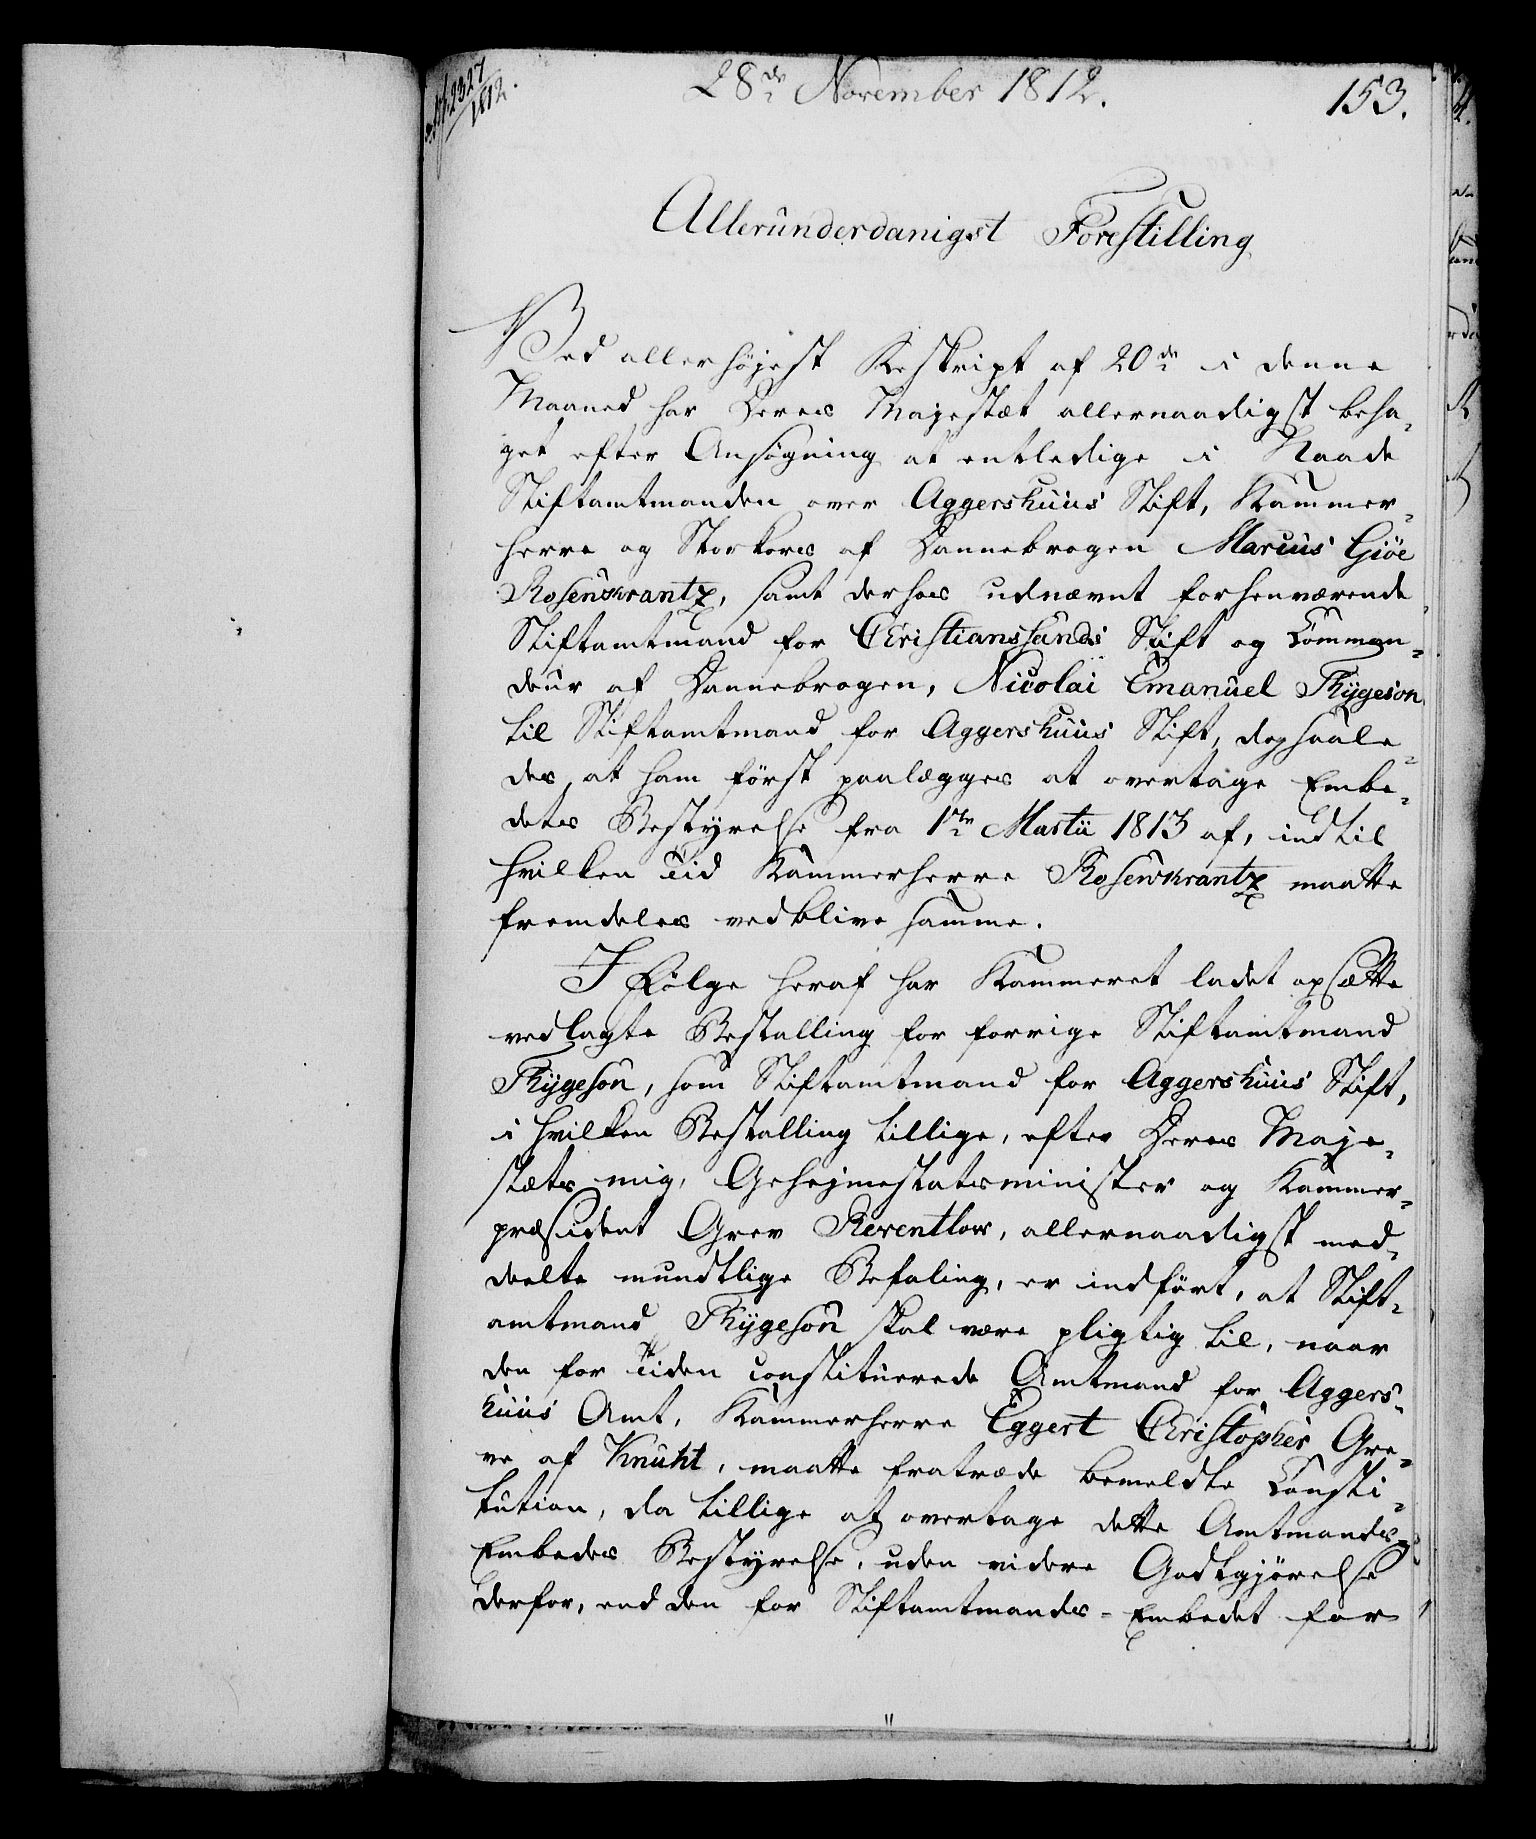 2327
1812.
28de November 1812.
153.
Allerunderdanigst Forestilling
Ved allerhøjest Reskript af 20de i denne
Maaned har Deres Majestæt allernaadigst beha-
get efter Ansøgning at entledige i Naade
Stiftamtmanden over Aggershuus Stift, Kammer-
herre og Storkors af Dannebrogen Marcus Giöe
Rosenkrantz, samt derhos udnævnt forhenværende
Stiftamtmand for Christianssands Stift og Comman-
deur af Dannebrogen, Nicolai Emanuel Thygeson
til Stiftamtmand for Aggershuus Stift, dog saale-
des, at ham först paalægges at overtage Embe-
dets Bestyrelse fra 1ste Martii 1813 af, indtil
hvilken Tid Kammerherre Rosenkrantz maatte
fremdeles vedblive samme.
I Fölge heraf har Kammeret ladet opsætte
vedlagte Bestalling for forrige Stiftamtmand
Thygeson, som Stiftamtmand for Aggershuus Stift,
i hvilken Bestalling tillige, efter Deres Maje-
stæts mig, Geheimestatsminister og Kammer-
præsident Grev Reventlow, allernaadigst med-
deelte mundtlige Befaling, er indfört, at Stift-
amtmand Thygeson skal være pligtig til, naar
den for Tiden constituerede Amtmand for Aggers-
huus Amt, Kammerherre Eggert Christopher Gre-
ve af Knuht, maatte fratræde bemeldte Consti-
tution, da tillige at overtage dette Amtmands-
Embedes Bestyrelse, uden videre Godtgjörelse
derfor, end den for Stiftamtmands-Embedet for